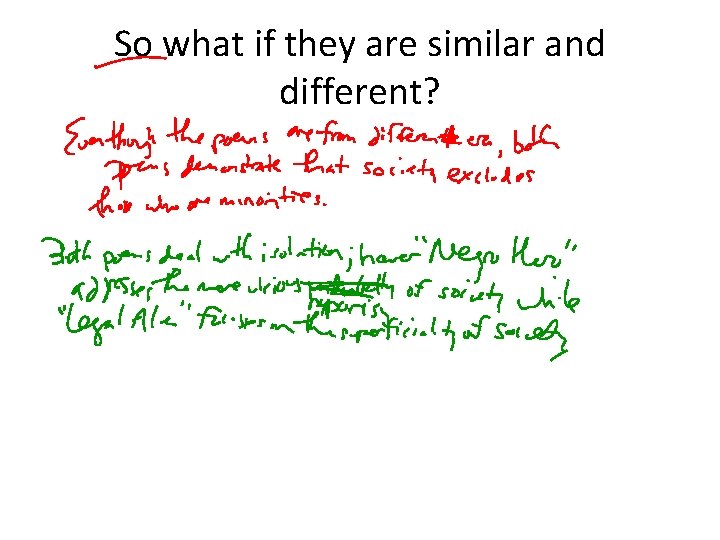 So what if they are similar and
different?
Eventhough the poems are from different era, both
poems demonstrate that society excludes
those who are minorities.
Both poems deal with isolation; however "Negro Hero"
adresses the more obvious of society while
hypocrisy
"Legal Alien" focuses on the superficiality of society